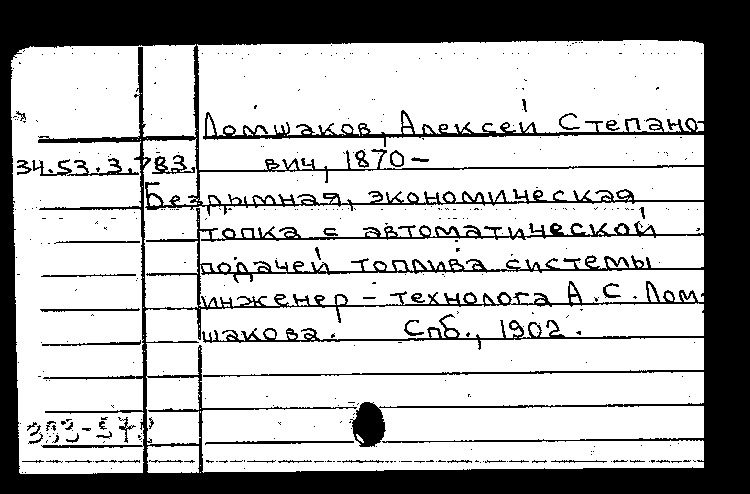 Ломшаков, Алексей Степано-
34.53.3.783. вич, 1870-
Бездымная, экономическая
топка с автоматической
подачей топлива системы
инженер-технолога А.С.Лом-
шакова. Спб., 1902.